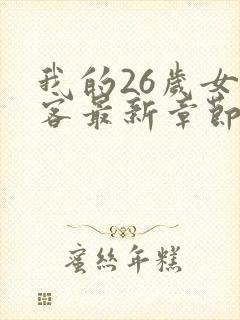 我的26歲女
客最新章節
蜜絲年糕